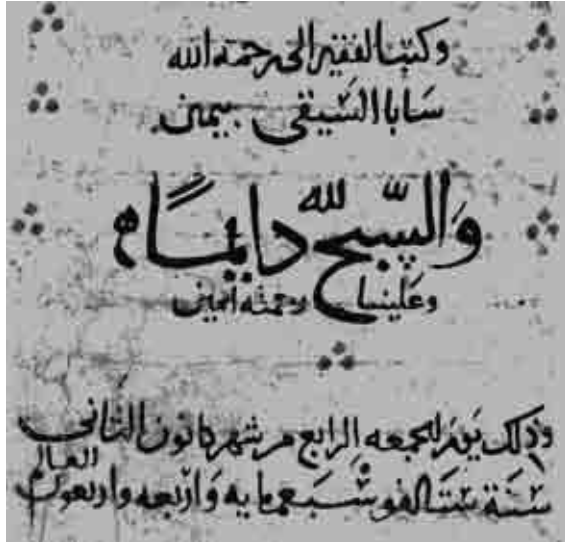 وكتب الفقير الى رحمة الله
سابا السيقي بيمين
والسبح لله دايمًا
وعلينا رحمته امين
وذلك يوم الجمعه الرابع من شهر كانون الثاني
سَنَة ستة الف وسَبعمايه وَاربعه واربعون
العالم